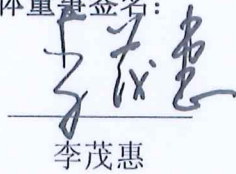 体董事签名：
李茂惠
李茂惠